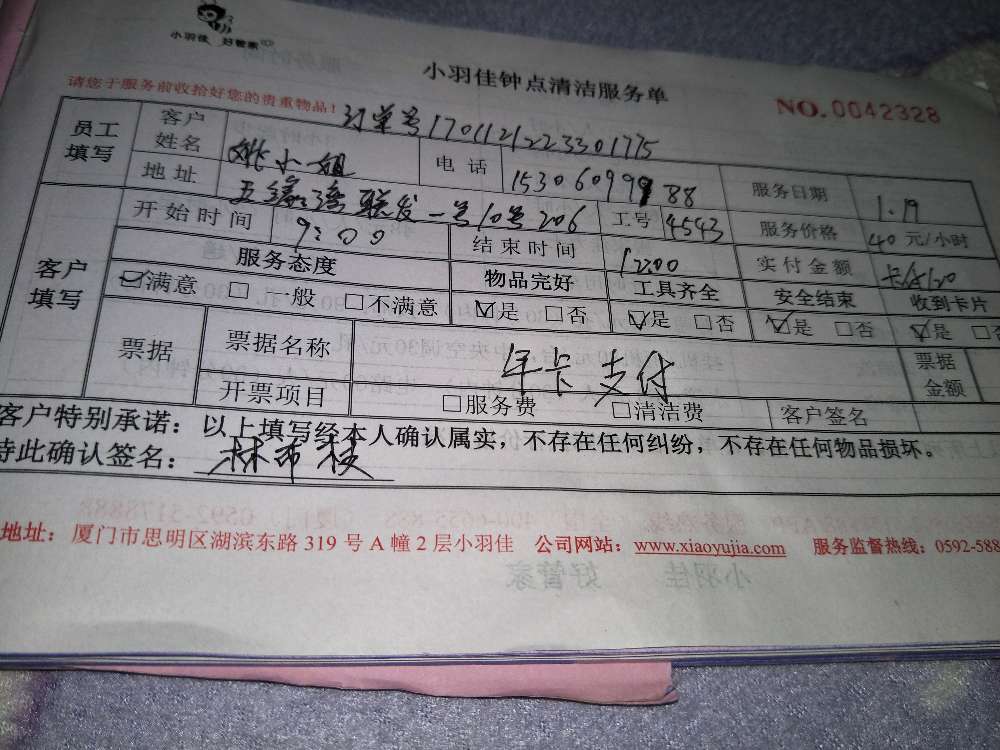 小羽佳 好管家
小羽佳钟点清洁服务单
请您于服务前收拾好您的贵重物品！
NO.0042328
订单号1701121223301775
员工填写 客户姓名 姚小姐 电话 15306099988 服务日期 1.19
地址 五缘湾联发一号10号206 工号 4543 服务价格 40元/小时
客户填写 开始时间 9:00 结束时间 12:00 实付金额
服务态度 物品完好 工具齐全 安全结束 收到卡片
☑满意 □一般 □不满意 ☑是 □否 ☑是 □否 ☑是 □否 ☑是 □
票据 票据名称 年卡支付 票据金额
开票项目 □服务费 □清洁费 客户签名
客户特别承诺：以上填写经本人确认属实，不存在任何纠纷，不存在任何物品损坏。
特此确认签名：
地址：厦门市思明区湖滨东路 319 号 A 幢 2 层小羽佳 公司网站：www.xiaoyujia.com 服务监督热线：0592-588